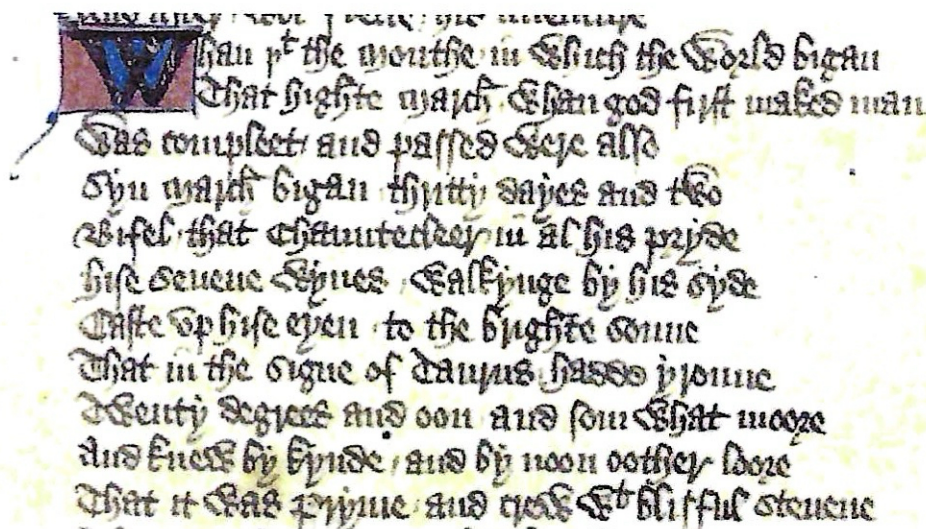 Whan þt the monthe in which the world bigan
That highte march whan god first maked man
Was compleet and passed were also
Syn march bigan thritty dayes and two
Bifel that Chauntecleer in al his pryde
hise seuene wyues walkynge by his syde
Caste vp hise eyen to the brighte sonne
That in the signe of Taurus hadde yronne
Twenty degrees and oon and som what moore
And knew by kynde and by noon oother loore
That it was pryme and crew wt blisful steuene